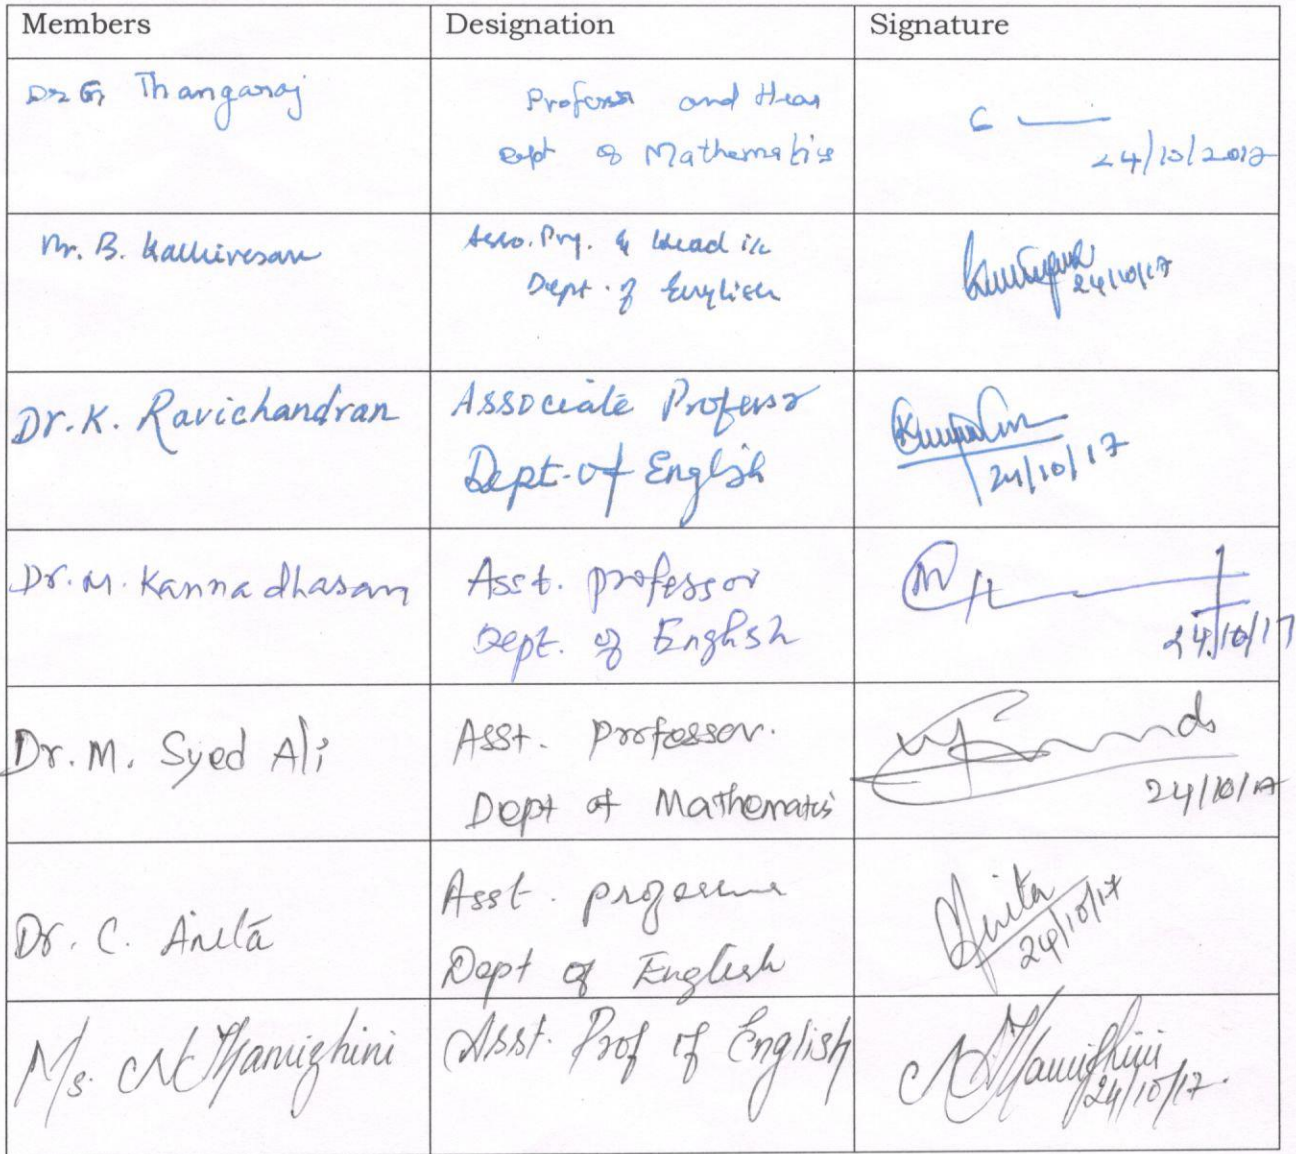 Members Designation Signature
Dr G. Thangaraj
Professor and Head
Dept of Mathematics
24/10/2017
Mr. B. Kathiresan
Asso. Prof. & Head i/c
Dept. of English
24/10/17
Dr. K. Ravichandran
Associate Professor
Dept. of English
24/10/17
Dr. M. Kannadhasan
Asst. professor
Dept. of English
24/10/17
Dr. M. Syed Ali
Asst. Professor.
Dept of Mathematics
24/10/17
Dr. C. Anita
Asst. professor
Dept of English
Anita
24/10/17
Ms. N Thamizhini
Asst. Prof of English
N Thamizhini
24/10/17.